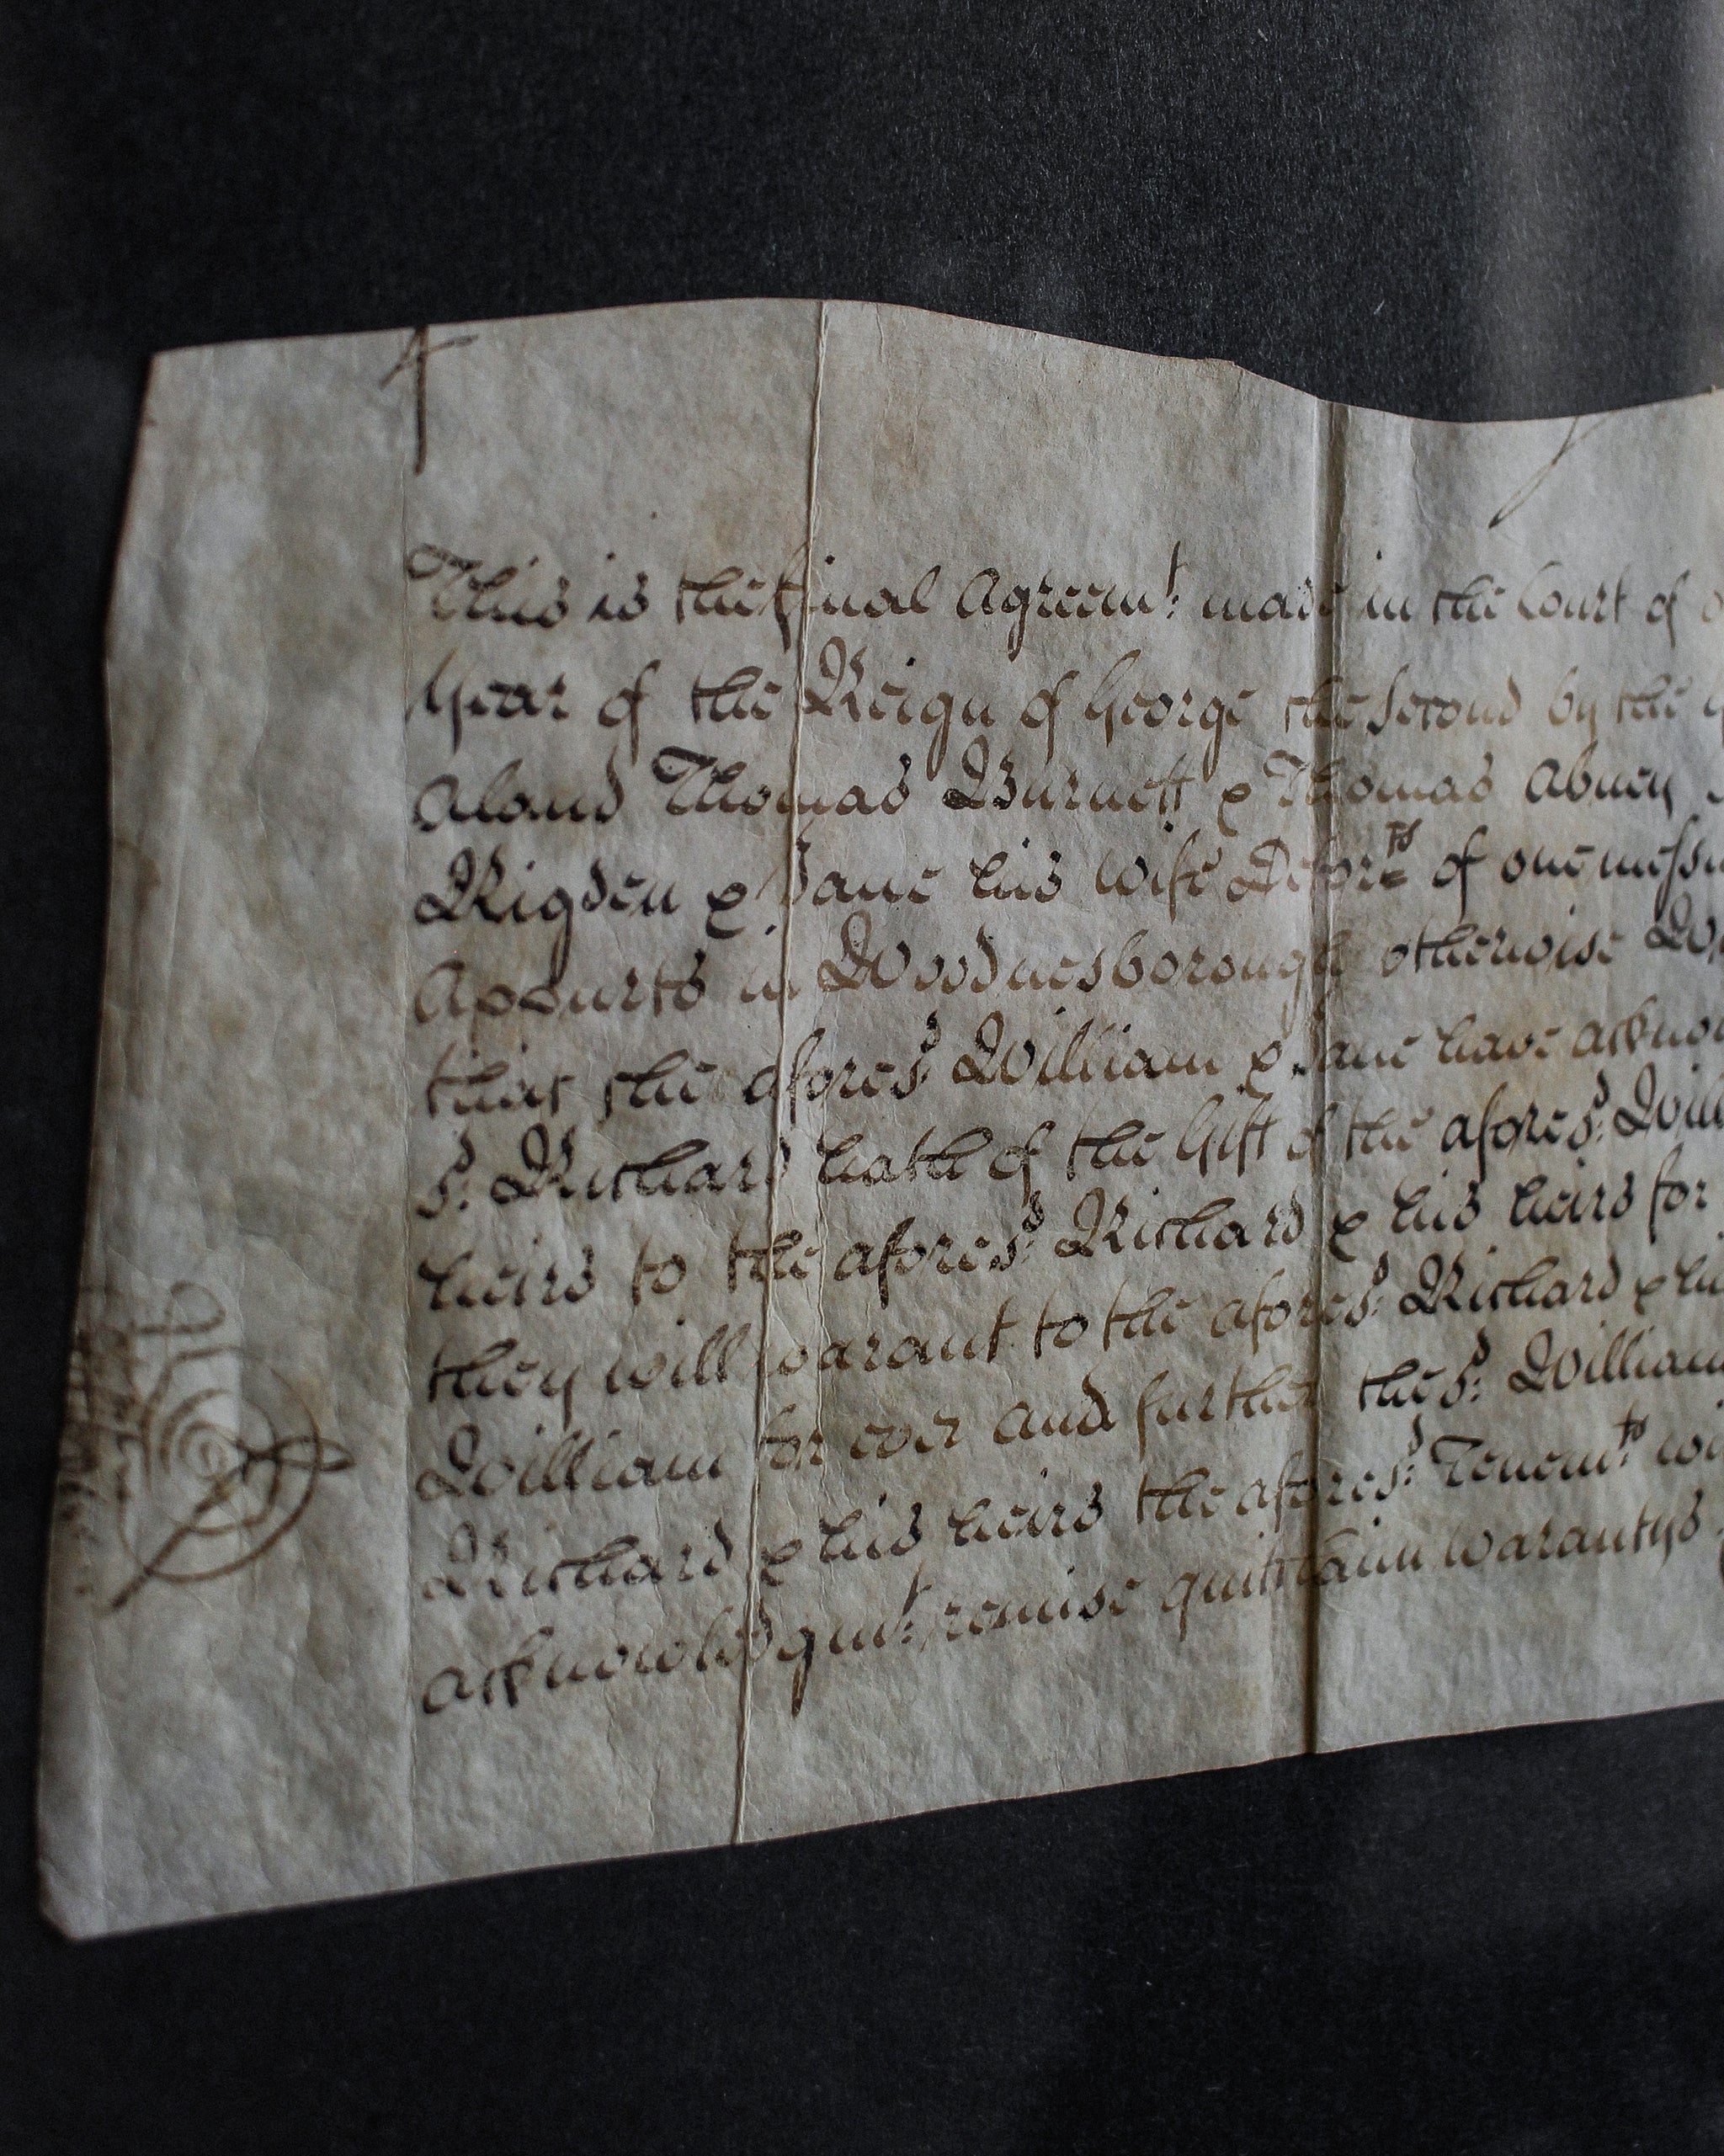 This is the final Agreem.t made in the Court of
Year of the Reign of George the Second by the
Aland Thomas Burnett & Thomas Abney
Rigden & Jane his wife Defor:ts of one messu
Appurts in Woodnesborough otherwise Wo
that the afores:d William & Jane have acknow
s:d Richard hath of the Gift of the afores:d Will
heirs to the afores:d Richard & his heirs for
they will warant to the afores:d Richard & hi
William for ever And further the s:d William
Richard & his heirs the afores:d Tenem:ts wi
acknowledgm:t remise quitclaim warantys